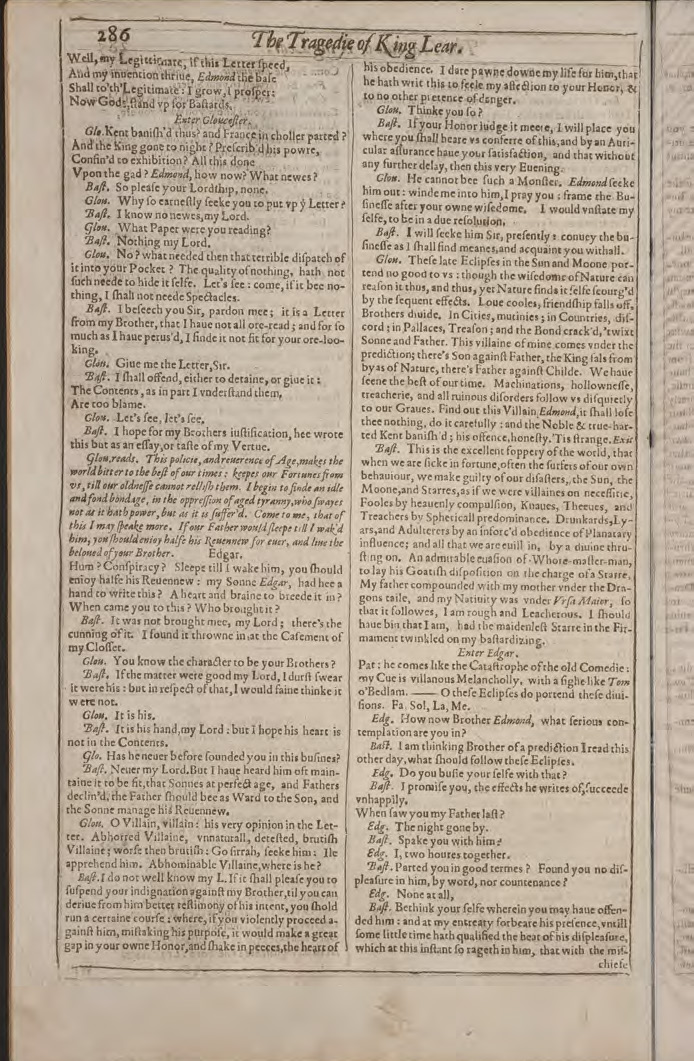 286
The Tragedie of King Lear.
Well, my Legittimate, if this Letter ſpeed,
And my inuention thriue, Edmond the baſe
Shall to'th'Legitimate: I grow, I proſper:
Now Gods, ſtand vp for Baſtards.
Enter Glouceſter.
Glo. Kent baniſh'd thus? and France in choller parted?
And the King gone to night? Preſcrib'd his powre,
Confin'd to exhibition? All this done
Vpon the gad? Edmond, how now? What newes?
Baſt. So pleaſe your Lordſhip, none.
Glou. Why ſo earneſtly ſeeke you to put vp yͤ Letter?
Baſt. I know no newes, my Lord.
Glou. What Paper were you reading?
Baſt. Nothing my Lord.
Glou. No? what needed then that terrible diſpatch of
it into your Pocket? The quality of nothing, hath not
ſuch neede to hide it ſelfe. Let's ſee: come, if it bee no-
thing, I ſhall not neede Spectacles.
Baſt. I beſeech you Sir, pardon mee; it is a Letter
from my Brother, that I haue not all ore-read; and for ſo
much as I haue perus'd, I finde it not fit for your ore-loo-
king.
Glou. Giue me the Letter, Sir.
Baſt. I ſhall offend, either to detaine, or giue it:
The Contents, as in part I vnderſtand them,
Are too blame.
Glou. Let's ſee, let's ſee.
Baſt. I hope for my Brothers iuſtification, hee wrote
this but as an eſſay, or taſte of my Vertue.
Glou. reads. This policie, and reuerence of Age, makes the
world bitter to the beſt of our times: keepes our Fortunes from
vs, till our oldneſſe cannot relliſh them. I begin to finde an idle
and fond bondage, in the oppreſſion of aged tyranny, who ſwayes
not as it hath power, but as it is ſuffer'd. Come to me, that of
this I may ſpeake more. If our Father would ſleepe till I wak'd
him, you ſhould enioy halfe his Reuennew for euer, and liue the
beloued of your Brother. Edgar.
Hum? Conſpiracy? Sleepe till I wake him, you ſhould
enioy halfe his Reuennew: my Sonne Edgar, had hee a
hand to write this? A heart and braine to breede it in?
When came you to this? Who brought it?
Baſt. It was not brought mee, my Lord; there's the
cunning of it. I found it throwne in at the Caſement of
my Cloſſet.
Glou. You know the character to be your Brothers?
Baſt. If the matter were good my Lord, I durſt ſwear
it were his: but in reſpect of that, I would faine thinke it
were not.
Glou. It is his.
Baſt. It is his hand, my Lord: but I hope his heart is
not in the Contents.
Glo. Has he neuer before ſounded you in this buſines?
Baſt. Neuer my Lord. But I haue heard him oft main-
taine it to be fit, that Sonnes at perfect age, and Fathers
declin'd, the Father ſhould bee as Ward to the Son, and
the Sonne manage his Reuennew.
Glou. O Villain, villain: his very opinion in the Let-
ter. Abhorred Villaine, vnnaturall, deteſted, brutiſh
Villaine; worſe then brutiſh: Go ſirrah, ſeeke him: Ile
apprehend him. Abhominable Villaine, where is he?
Baſt. I do not well know my L. If it ſhall pleaſe you to
ſuſpend your indignation againſt my Brother, til you can
deriue from him better teſtimony of his intent, you ſhold
run a certaine courſe: where, if you violently proceed a-
gainſt him, miſtaking his purpoſe, it would make a great
gap in your owne Honor, and ſhake in peeces, the heart of
his obedience. I dare pawne downe my life for him, that
he hath writ this to feele my affection to your Honor, &
to no other pretence of danger.
Glou. Thinke you ſo?
Baſt. If your Honor iudge it meete, I will place you
where you ſhall heare vs conferre of this, and by an Auri-
cular aſſurance haue your ſatisfaction, and that without
any further delay, then this very Euening.
Glou. He cannot bee ſuch a Monſter. Edmond ſeeke
him out: winde me into him, I pray you: frame the Bu-
ſineſſe after your owne wiſedome. I would vnſtate my
ſelfe, to be in a due reſolution.
Baſt. I will ſeeke him Sir, preſently: conuey the bu-
ſineſſe as I ſhall find meanes, and acquaint you withall.
Glou. Theſe late Eclipſes in the Sun and Moone por-
tend no good to vs: though the wiſedome of Nature can
reaſon it thus, and thus, yet Nature finds it ſelfe ſcourg'd
by the ſequent effects. Loue cooles, friendſhip falls off,
Brothers diuide. In Cities, mutinies; in Countries, diſ-
cord; in Pallaces, Treaſon; and the Bond crack'd, 'twixt
Sonne and Father. This villaine of mine comes vnder the
prediction; there's Son againſt Father, the King fals from
byas of Nature, there's Father againſt Childe. We haue
ſeene the beſt of our time. Machinations, hollowneſſe,
treacherie, and all ruinous diſorders follow vs diſquietly
to our Graues. Find out this Villain, Edmond, it ſhall loſe
thee nothing, do it carefully: and the Noble & true-har-
ted Kent baniſh'd; his offence, honeſty. 'Tis ſtrange. Exit
Baſt. This is the excellent foppery of the world, that
when we are ſicke in fortune, often the ſurfets of our own
behauiour, we make guilty of our diſaſters, the Sun, the
Moone, and Starres, as if we were villaines on neceſſitie,
Fooles by heauenly compulſion, Knaues, Theeues, and
Treachers by Sphericall predominance. Drunkards, Ly-
ars, and Adulterers by an inforc'd obedience of Planatary
influence; and all that we are euill in, by a diuine thru-
ſting on. An admirable euaſion of Whore-maſter-man,
to lay his Goatiſh diſpoſition on the charge of a Starre,
My father compounded with my mother vnder the Dra-
gons taile, and my Natiuity was vnder Vrſa Maior, ſo
that it followes, I am rough and Leacherous. I ſhould
haue bin that I am, had the maidenleſt Starre in the Fir-
mament twinkled on my baſtardizing.
Enter Edgar.
Pat: he comes like the Cataſtrophe of the old Comedie:
my Cue is villanous Melancholly, with a ſighe like Tom
o'Bedlam. —— O theſe Eclipſes do portend theſe diui-
ſions. Fa, Sol, La, Me.
Edg. How now Brother Edmond, what ſerious con-
templation are you in?
Baſt. I am thinking Brother of a prediction I read this
other day, what ſhould follow theſe Eclipſes.
Edg. Do you buſie your ſelfe with that?
Baſt. I promiſe you, the effects he writes of, ſucceede
vnhappily.
When ſaw you my Father laſt?
Edg. The night gone by.
Baſt. Spake you with him?
Edg. I, two houres together.
Baſt. Parted you in good termes? Found you no diſ-
pleaſure in him, by word, nor countenance?
Edg. None at all,
Baſt. Bethink your ſelfe wherein you may haue offen-
ded him: and at my entreaty forbeare his preſence, vntill
ſome little time hath qualified the heat of his diſpleaſure,
which at this inſtant ſo rageth in him, that with the miſ-
chiefe